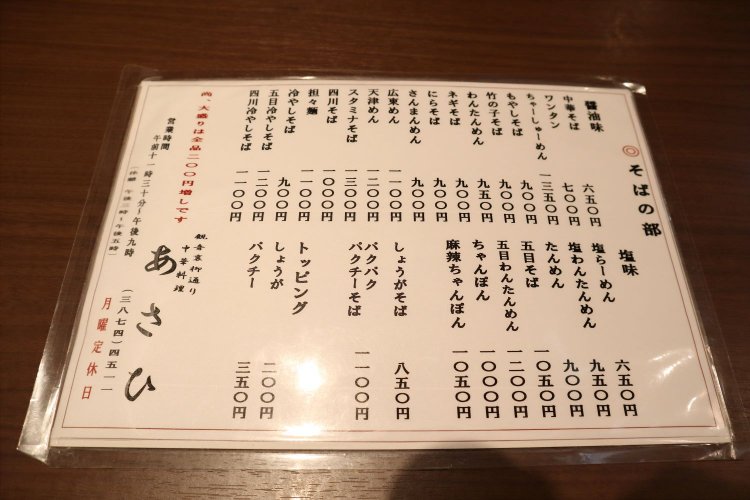 ◎そばの部
醤油味
中華そば 六五〇円
ワンタン 七〇〇円
ちゃーしゅーめん 一三五〇円
もやしそば 九〇〇円
竹の子そば 九〇〇円
わんたんめん 九五〇円
ネギそば 九〇〇円
にらそば 九〇〇円
さんまんめん 九〇〇円
広東めん 一一〇〇円
天津めん 一二〇〇円
スタミナそば 一三〇〇円
四川そば 一〇〇〇円
担々麺 一一〇〇円
冷やしそば 九〇〇円
五目冷やしそば 一二〇〇円
四川冷やしそば 一一〇〇円
塩味
塩らーめん 六五〇円
塩わんたんめん 九五〇円
たんめん 九〇〇円
五目そば 一〇五〇円
五目わんたんめん 一二〇〇円
ちゃんぽん 一〇〇〇円
麻辣ちゃんぽん 一〇五〇円
しょうがそば 八五〇円
パクパク
パクチーそば 一一〇〇円
トッピング
しょうが 二〇〇円
パクチー 三五〇円
尚、大盛りは全品二〇〇円増しです
営業時間
午前十一時三十分～午後九時
(休憩 午後三時～午後五時)
観音裏柳通り
中華料理
あさひ
(三八七四)四五一一
月曜定休日